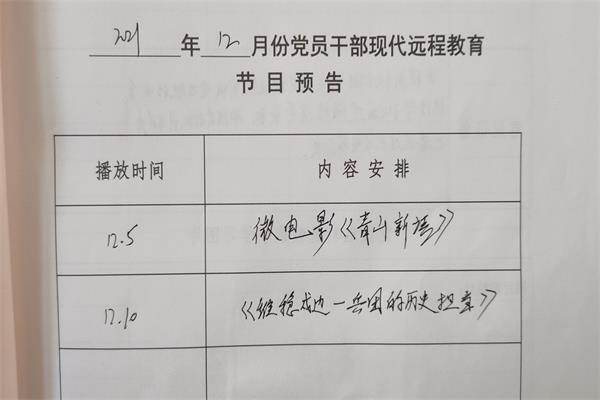 2021 年 12 月份党员干部现代远程教育
节目预告
播放时间 内容安排
12.5 微电影《青山新语》
12.10 《维稳戍边一兵团的历史担当》